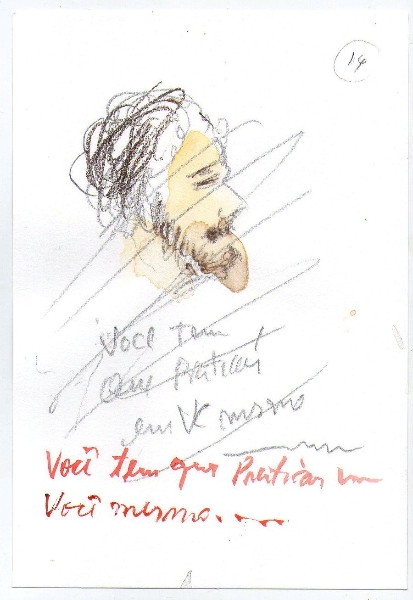 14
Você tem
que Praticar
em Vc mesmo
Você tem que Praticar em
Você mesmo....